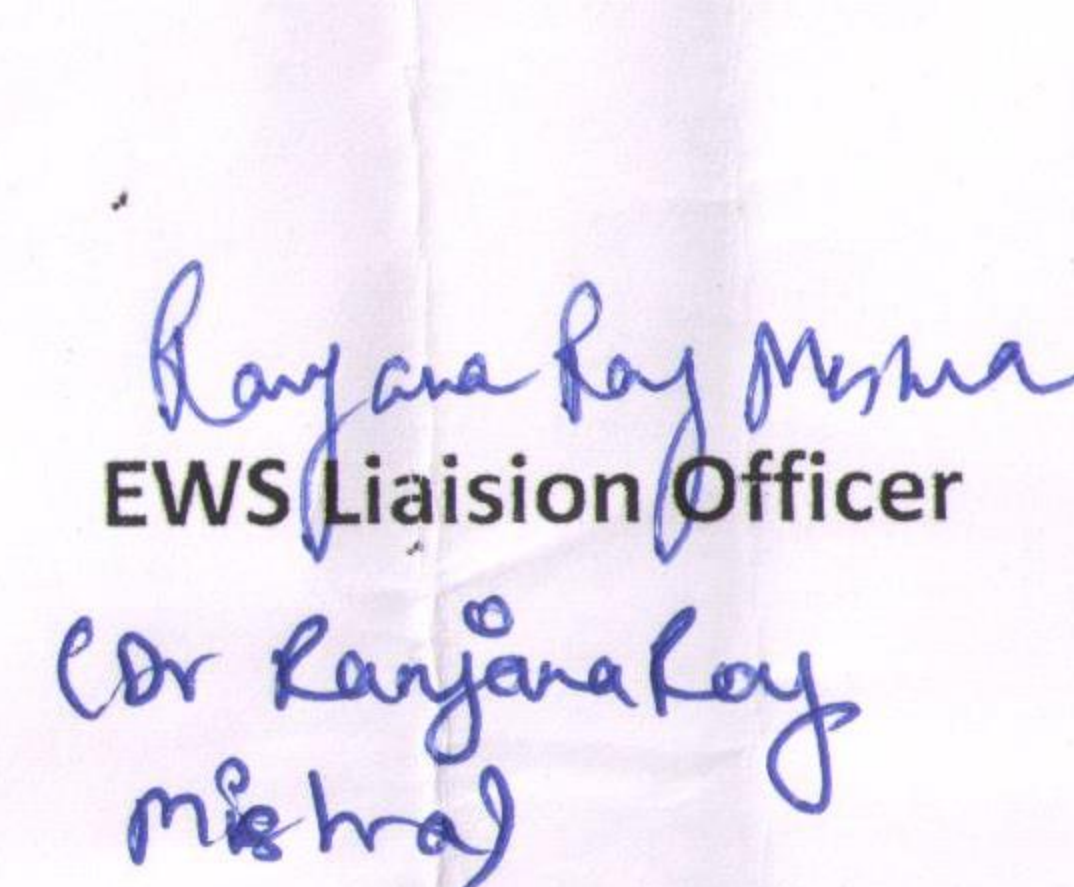 Ranjana Ray Mishra
EWS Liaision Officer
(Dr Ranjana Ray
Mishra)